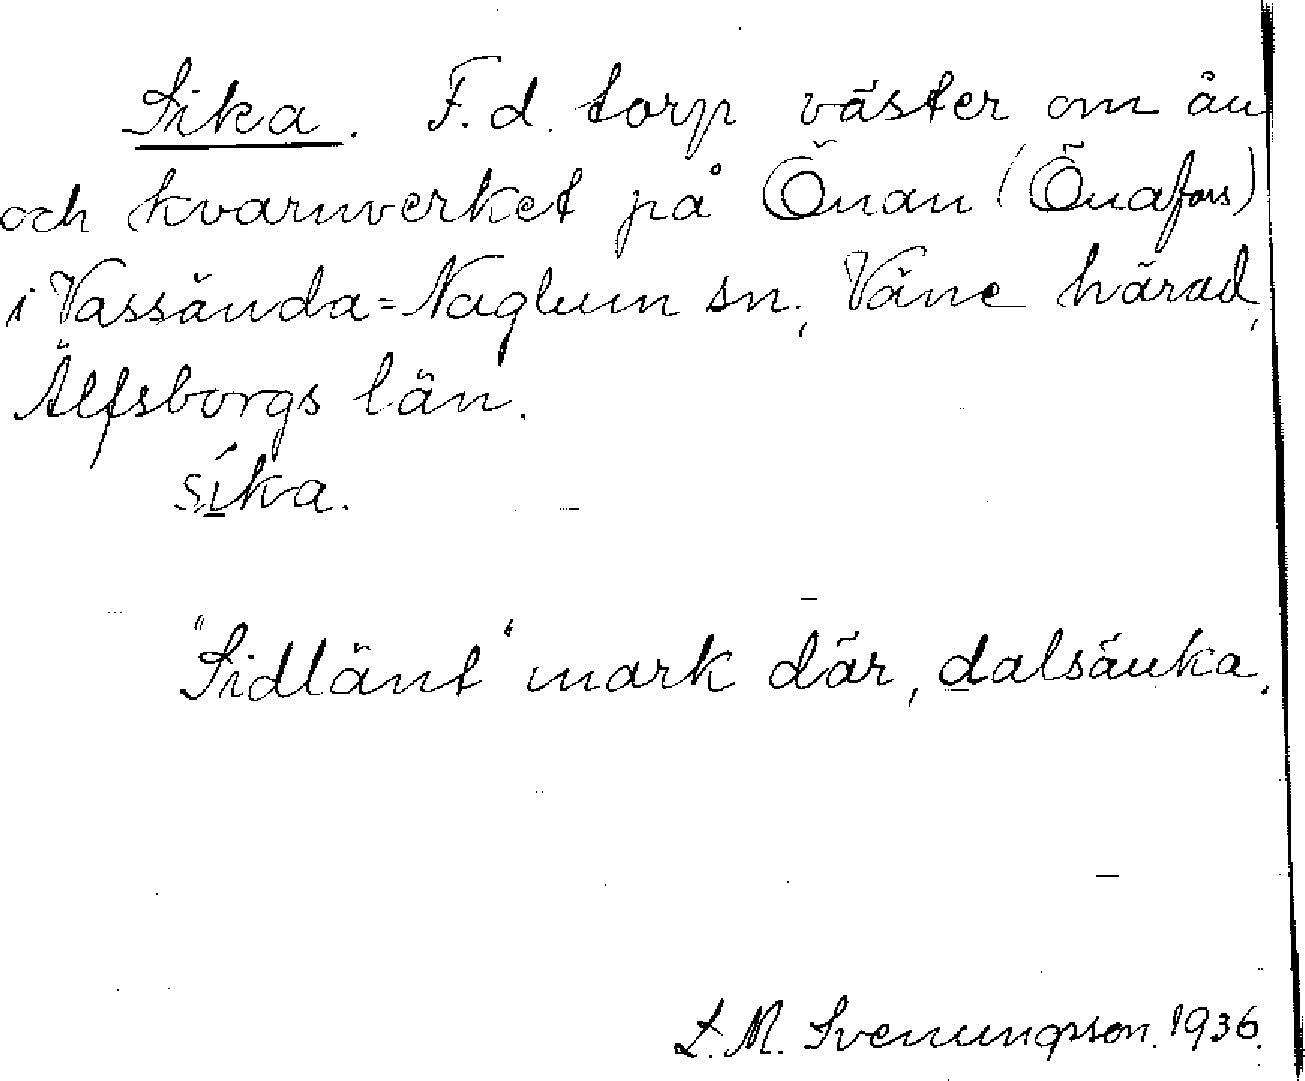 Sika. F.d. torp väster om ån
och kvarnverket på Önan (Önafors)
i Vassända=Naglum sn., Väne härad,
Älfsborgs län.
síka.
"Sidlänt" mark där, dalsänka.
L.M. Svenungsson. 1936.